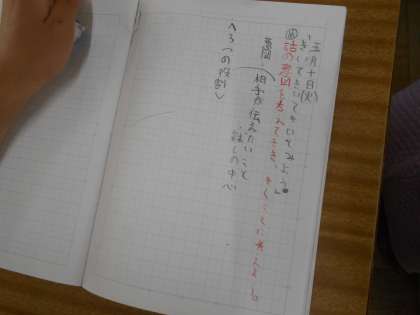 五月十日(火)
「きいてきいてきいてみよう」
め 話の意図を考えてきき、きくことに考えよう
意図…相手が伝えたいこと
話しの中心
〈3つの役割〉